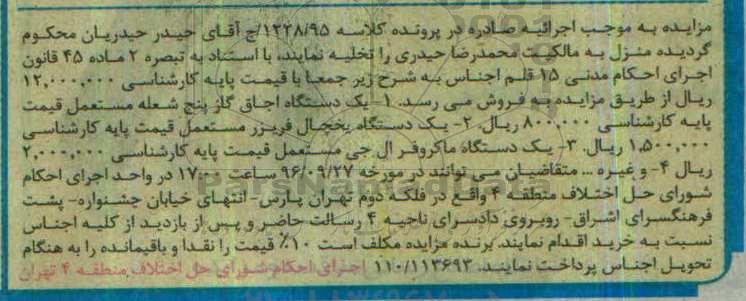 مزایده به موجب اجرائیه صادره در پرونده کلاسه ۱۲۲۸/۹۵/ج آقای حیدر حیدریان محکوم
گردیده منزل به مالکیت محمدرضا حیدری را تخلیه نمایند، با استناد به تبصره ۲ ماده ۴۵ قانون
اجرای احکام مدنی ۱۵ قلم اجناس به شرح زیر جمعا با قیمت پایه کارشناسی ۱۲,۰۰۰,۰۰۰
ریال از طریق مزایده به فروش می رسد. ۱- یک دستگاه اجاق گاز پنج شعله مستعمل قیمت
پایه کارشناسی ۸۰۰,۰۰۰ ریال. ۲- یک دستگاه یخچال فریزر مستعمل قیمت پایه کارشناسی
۱,۵۰۰,۰۰۰ ریال. ۳- یک دستگاه ماکروفر ال جی مستعمل قیمت پایه کارشناسی ۲,۰۰۰,۰۰۰
ریال ۴- و غیره ... متقاضیان می توانند در مورخه ۹۶/۰۹/۲۷ ساعت ۱۷:۰۰ در واحد اجرای احکام
شورای حل اختلاف منطقه ۴ واقع در فلکه دوم تهران پارس- انتهای خیابان جشنواره- پشت
فرهنگسرای اشراق- روبروی دادسرای ناحیه ۴ رسالت حاضر و پس از بازدید از کلیه اجناس
نسبت به خرید اقدام نمایند. برنده مزایده مکلف است ۱۰٪ قیمت را نقدا و باقیمانده را به هنگام
تحویل اجناس پرداخت نمایند. ۱۱۰/۱۱۳۶۹۳ اجرای احکام شورای حل اختلاف منطقه ۴ تهران
ParsNamadData